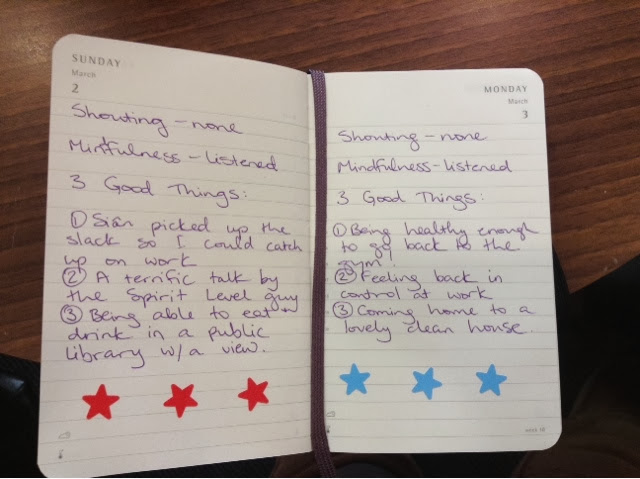 SUNDAY
March
2
Shouting - none
Mindfulness - listened
3 Good Things:
① Siân picked up the
slack so I could catch
up on work
② A terrific talk by
the Spirit Level guy
③ Being able to eat +
drink in a public
library w/ a view.
MONDAY
March
3
Shouting - none
Mindfulness - listened
3 Good Things:
① Being healthy enough
to go back to the
gym.
② Feeling back in
control at work
③ Coming home to a
lovely clean house.
week 10